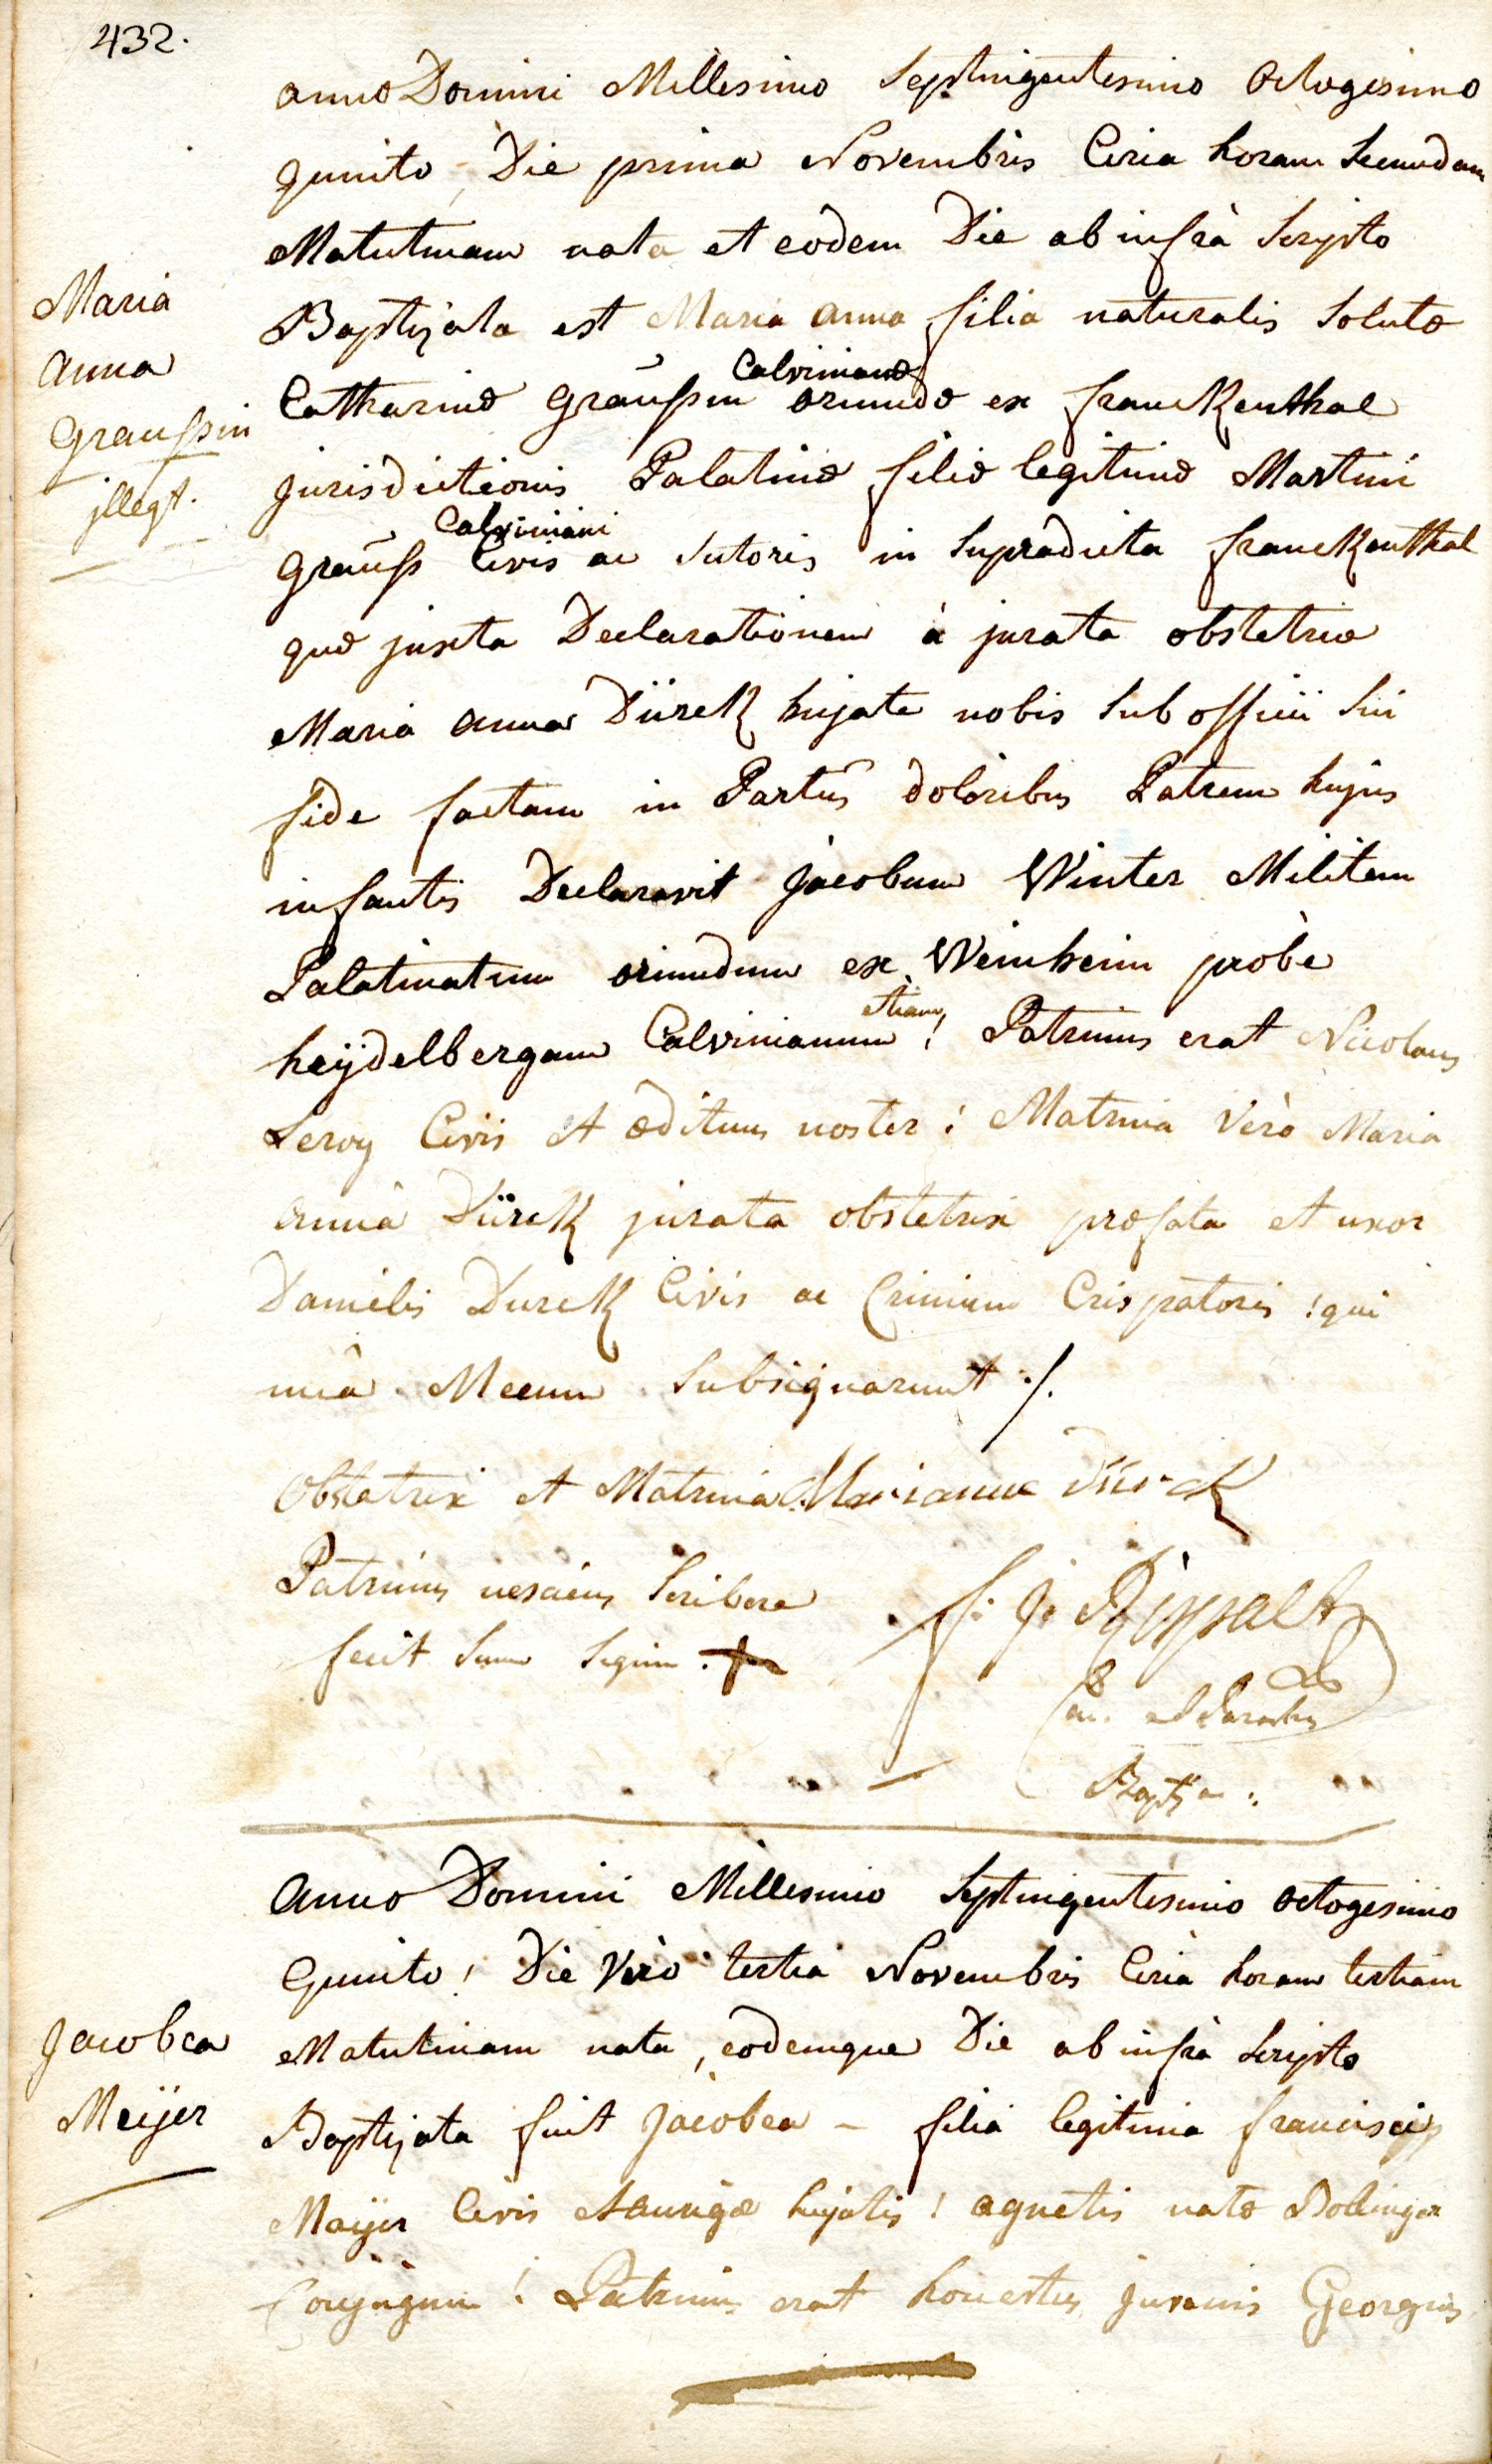 432.
anno Domini Millesimo Septingentesimo Octogesimo
quinto, Die prima Novembris Circa horam Secundam
Matutinam nata et eodem Die ab infrà Scripto
Maria
Baptizata est Maria Anna filia naturalis Solutæ
anna
Calvinianæ
Catharinæ Graußin oriundæ ex franckenthal
Graußin
jllegt.
jurisdictionis Palatinæ filiæ legitimæ Martini
Calviniani
Grauß Civis ac Sutoris in Supradicta franckenthal
quæ juxta Declarationem à jurata obstetrice
Maria anna Dürck hujate nobis Sub officii Sui
fide factam in Partûs doloribus Patrem hujus
infantis Declaravit jacobum Winter Militem
Palatinatum oriundum ex Weinheim probè
etiam
heÿdelbergam Calvinianum! Patrinus erat Nicolaus
Leroy Civis et ædituus noster! Matrina Verò Maria
anna Dürck jurata obstetrix præfata et uxor
Danielis Durck Civis ac Crinium Crispatoris! qui
unà Mecum Subsignarunt ./.
Obstetrix et Matrina Marianna Dürck
Patrinus nesciens Scribere
fecit Suum Signum. +
f: J: Rippalt
et Parochus
Anno Domini Millesimo Septingentesimo octogesimo
Quinto! Die Verò tertia Novembris Circa horam tertiam
Jacobea
Matutinam nata, eodemque Die ab infrà Scripto
Meijer
Baptizata fuit Jacobea - filia legitima francisci
Maÿer Civis et aurigæ hujatis! agnetis natæ Bollinger
Conjugum! Patrinus erat honestus juvenis Georgius